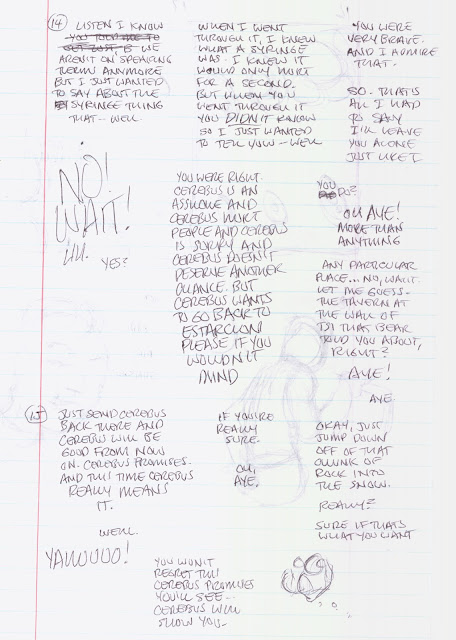 14
LISTEN I KNOW
YOU TOLD ME TO
GET LOST, & WE
AREN'T ON SPEAKING
TERMS ANYMORE
BUT I JUST WANTED
TO SAY ABOUT THE
SYRINGE THING
THAT -- WELL
WHEN I WENT
THROUGH IT, I KNEW
WHAT A SYRINGE
WAS. I KNEW IT
WOULD ONLY HURT
FOR A SECOND.
BUT WHEN YOU
WENT THROUGH IT
YOU DIDN'T KNOW
SO I JUST WANTED
TO TELL YOU -- WELL
YOU WERE
VERY BRAVE.
AND I ADMIRE
THAT.
SO - THAT'S
ALL I HAD
TO SAY
I'LL LEAVE
YOU ALONE
JUST LIKE I
NO!
WAIT!
UH.
YES?
YOU WERE RIGHT.
CEREBUS IS AN
ASSHOLE AND
CEREBUS HURT
PEOPLE AND CEREBUS
IS SORRY AND
CEREBUS DOESN'T
DESERVE ANOTHER
CHANCE. BUT
CEREBUS WANTS
TO GO BACK TO
ESTARCION
PLEASE IF YOU
WOULDN'T
MIND
YOU
DO?
OH AYE!
MORE THAN
ANYTHING
ANY PARTICULAR
PLACE... NO, WAIT.
LET ME GUESS -
THE TAVERN AT
THE WALL OF
TSI THAT BEAR
TOLD YOU ABOUT,
RIGHT?
AYE!
AYE.
15
JUST SEND CEREBUS
BACK THERE AND
CEREBUS WILL BE
GOOD FROM NOW
ON. CEREBUS PROMISES.
AND THIS TIME CEREBUS
REALLY MEANS
IT.
WELL.
IF YOU'RE
REALLY
SURE.
OH,
AYE.
OKAY, JUST
JUMP DOWN
OFF OF THAT
CHUNK OF
ROCK INTO
THE SNOW.
REALLY?
SURE IF THAT'S
WHAT YOU WANT
YAHOOOO!
YOU WON'T
REGRET THIS
CEREBUS PROMISES
YOU'LL SEE --
CEREBUS WILL
SHOW YOU -